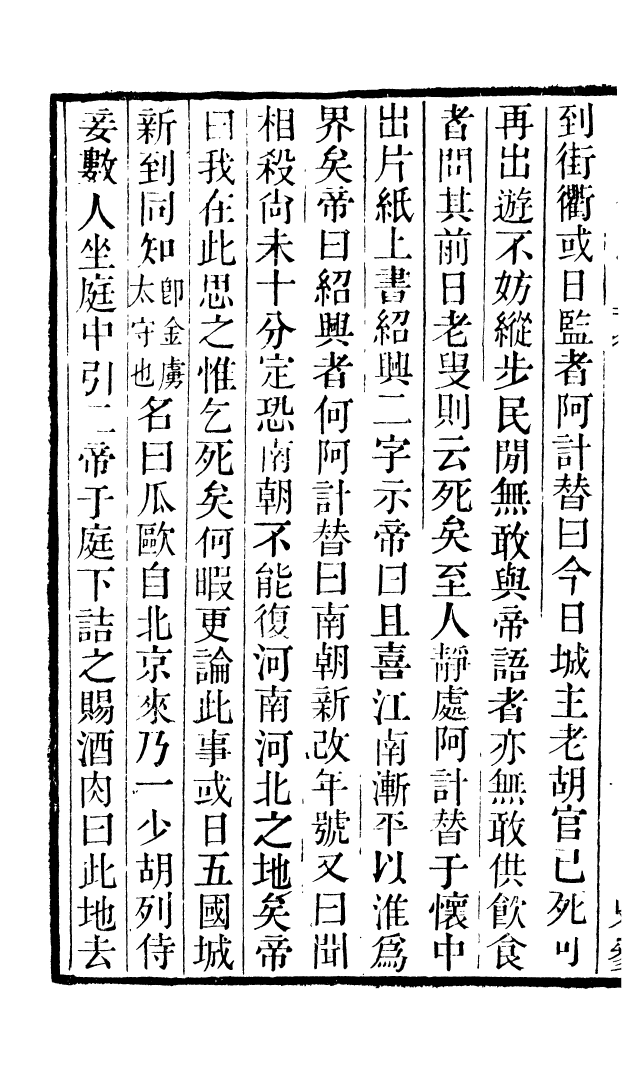 到街衢或日監者阿計替曰今日城主老胡官已死可
再出遊不妨縱步民閒無敢與帝語者亦無敢供飲食
者問其前日老叟則云死矣至人靜處阿計替于懷中
出片紙上書紹興二字示帝曰且喜江南漸平以淮爲
界矣帝曰紹興者何阿計替曰南朝新改年號又曰聞
相殺尚未十分定恐南朝不能復河南河北之地矣帝
曰我在此思之惟乞死矣何暇更論此事或日五國城
新到同知卽金虜太守也名曰瓜歐自北京來乃一少胡列侍
妾數人坐庭中引二帝于庭下詰之賜酒肉曰此地去